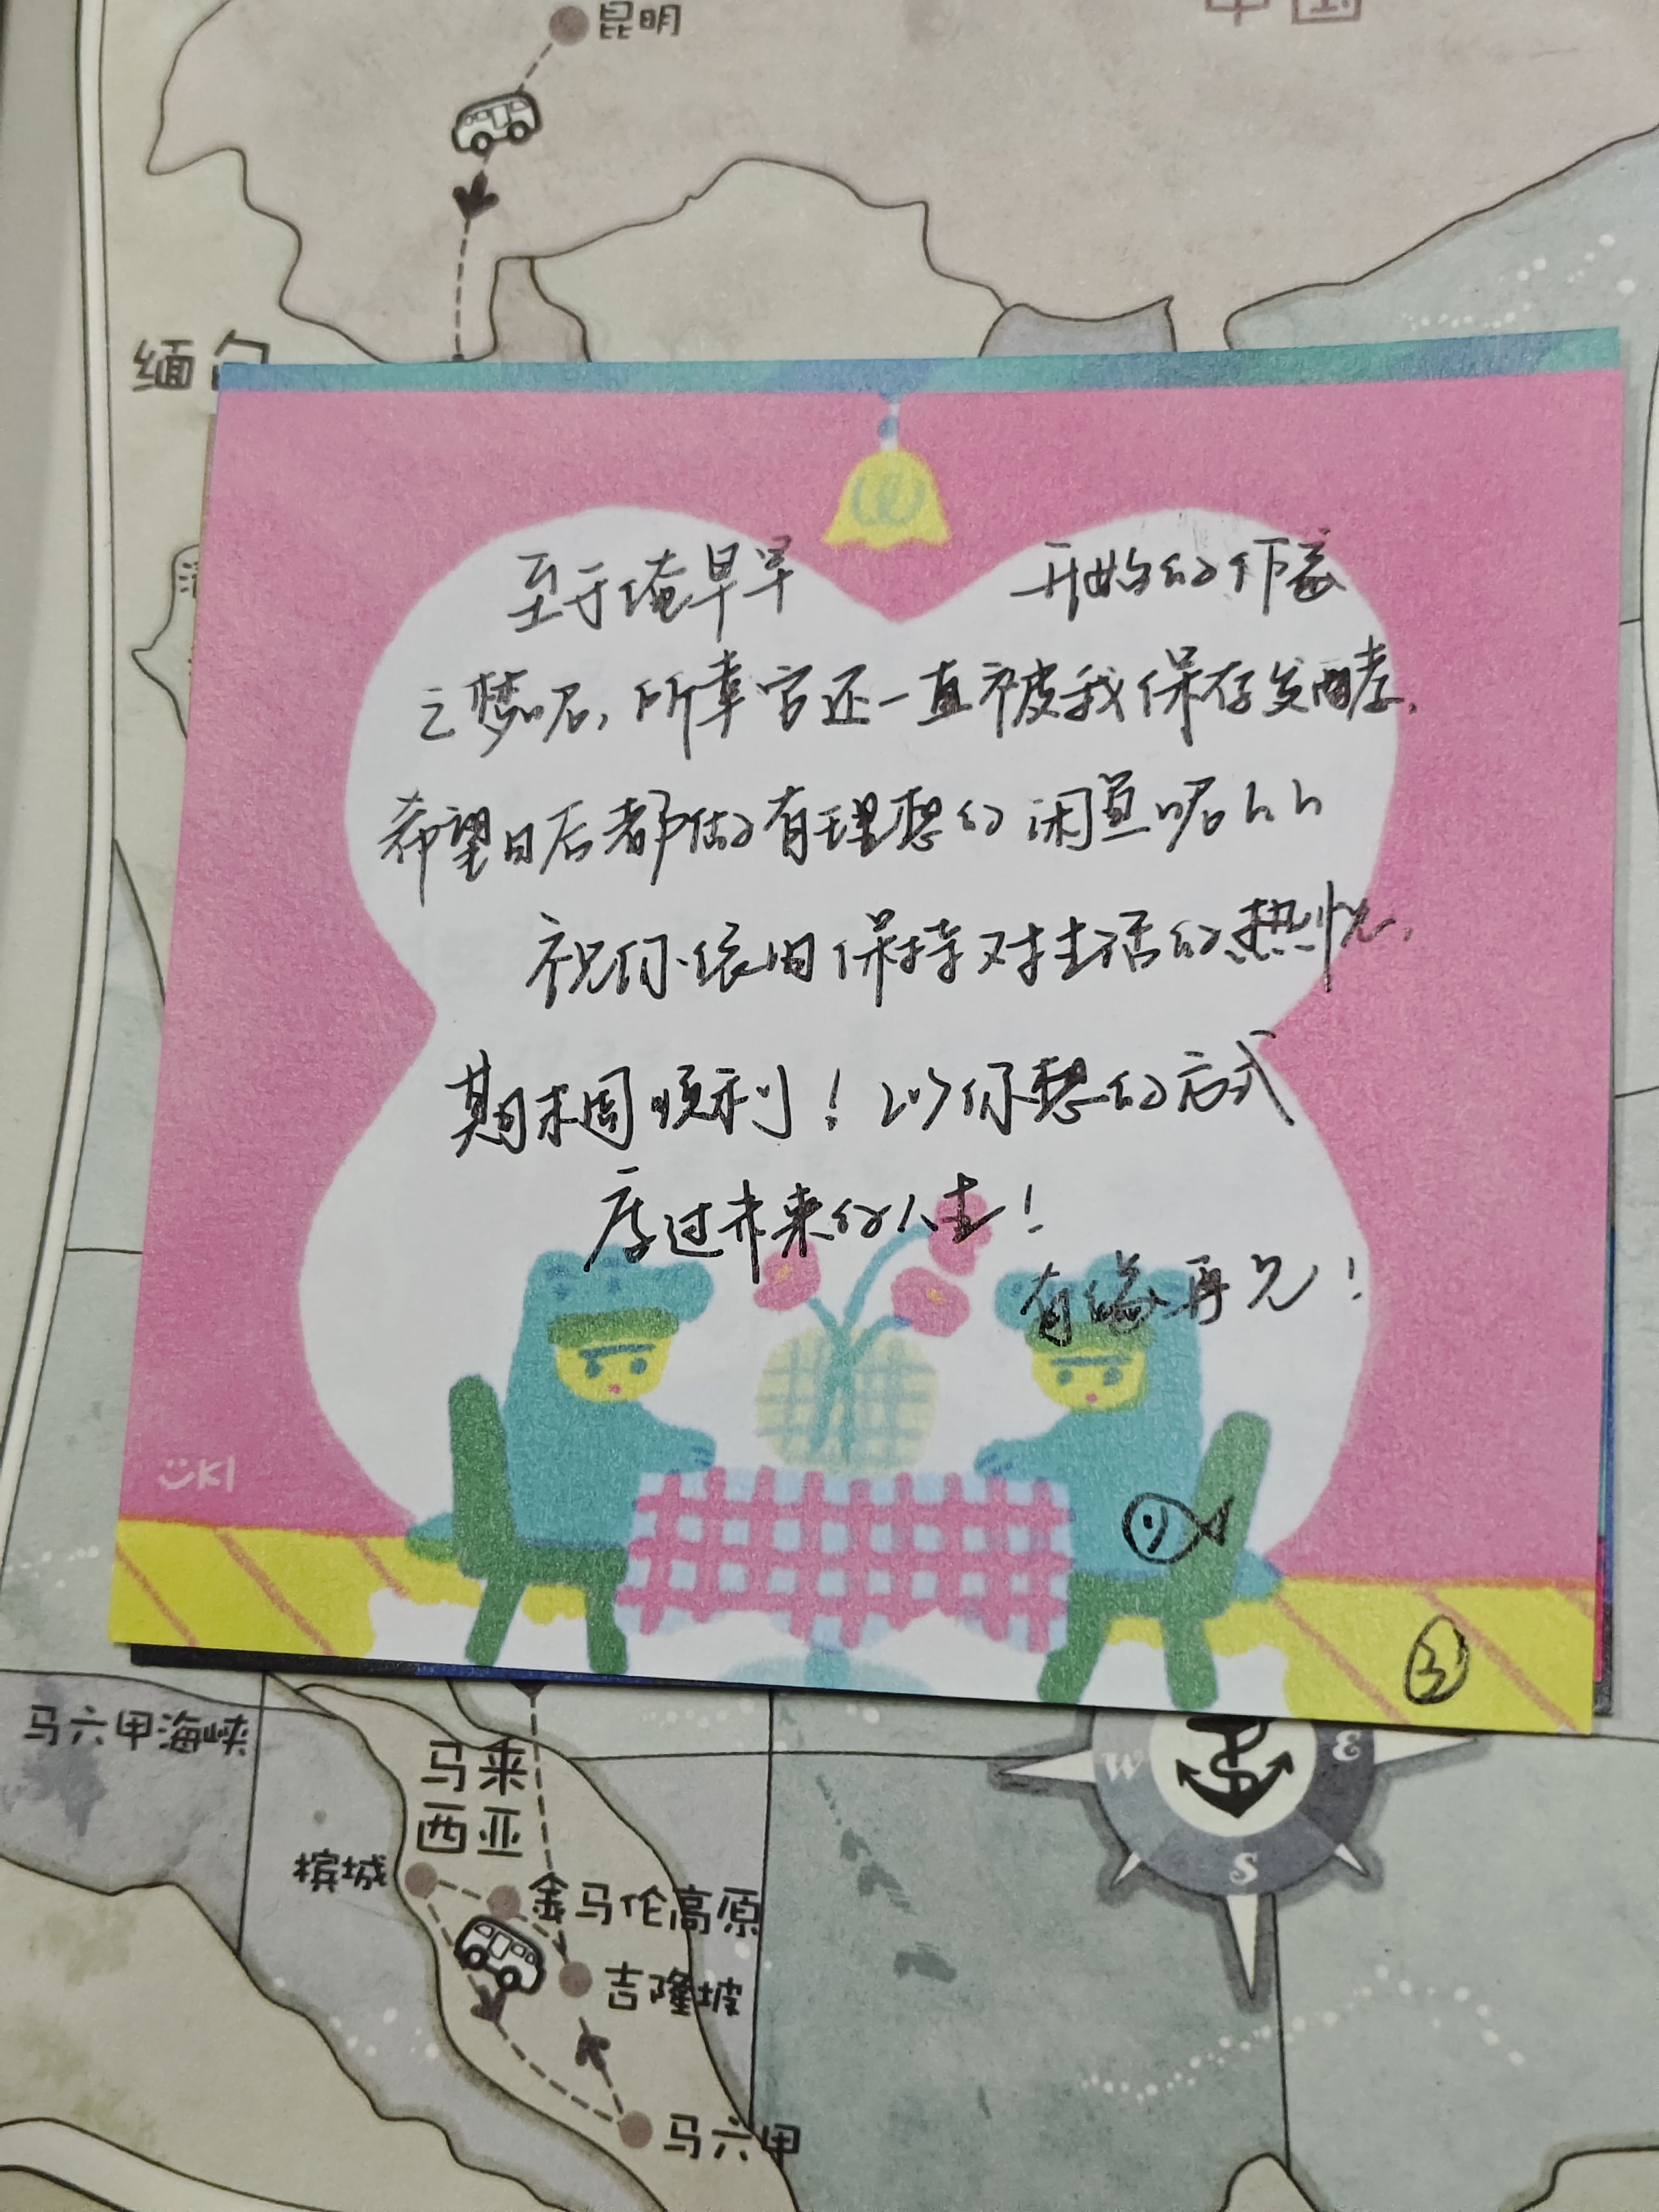 昆明
中国
缅甸
至于俺早早 开始的作家
之梦呢，所幸它还一直被我保存发酵，
希望日后都做有理想的闲鱼呢hh
祝你依旧保持对生活的热忱，
期末周顺利！以你想的方式
度过未来的人生！
有缘再见！
UKI
③
马六甲海峡
马来
西亚
槟城
金马伦高原
吉隆坡
马六甲
W
E
S